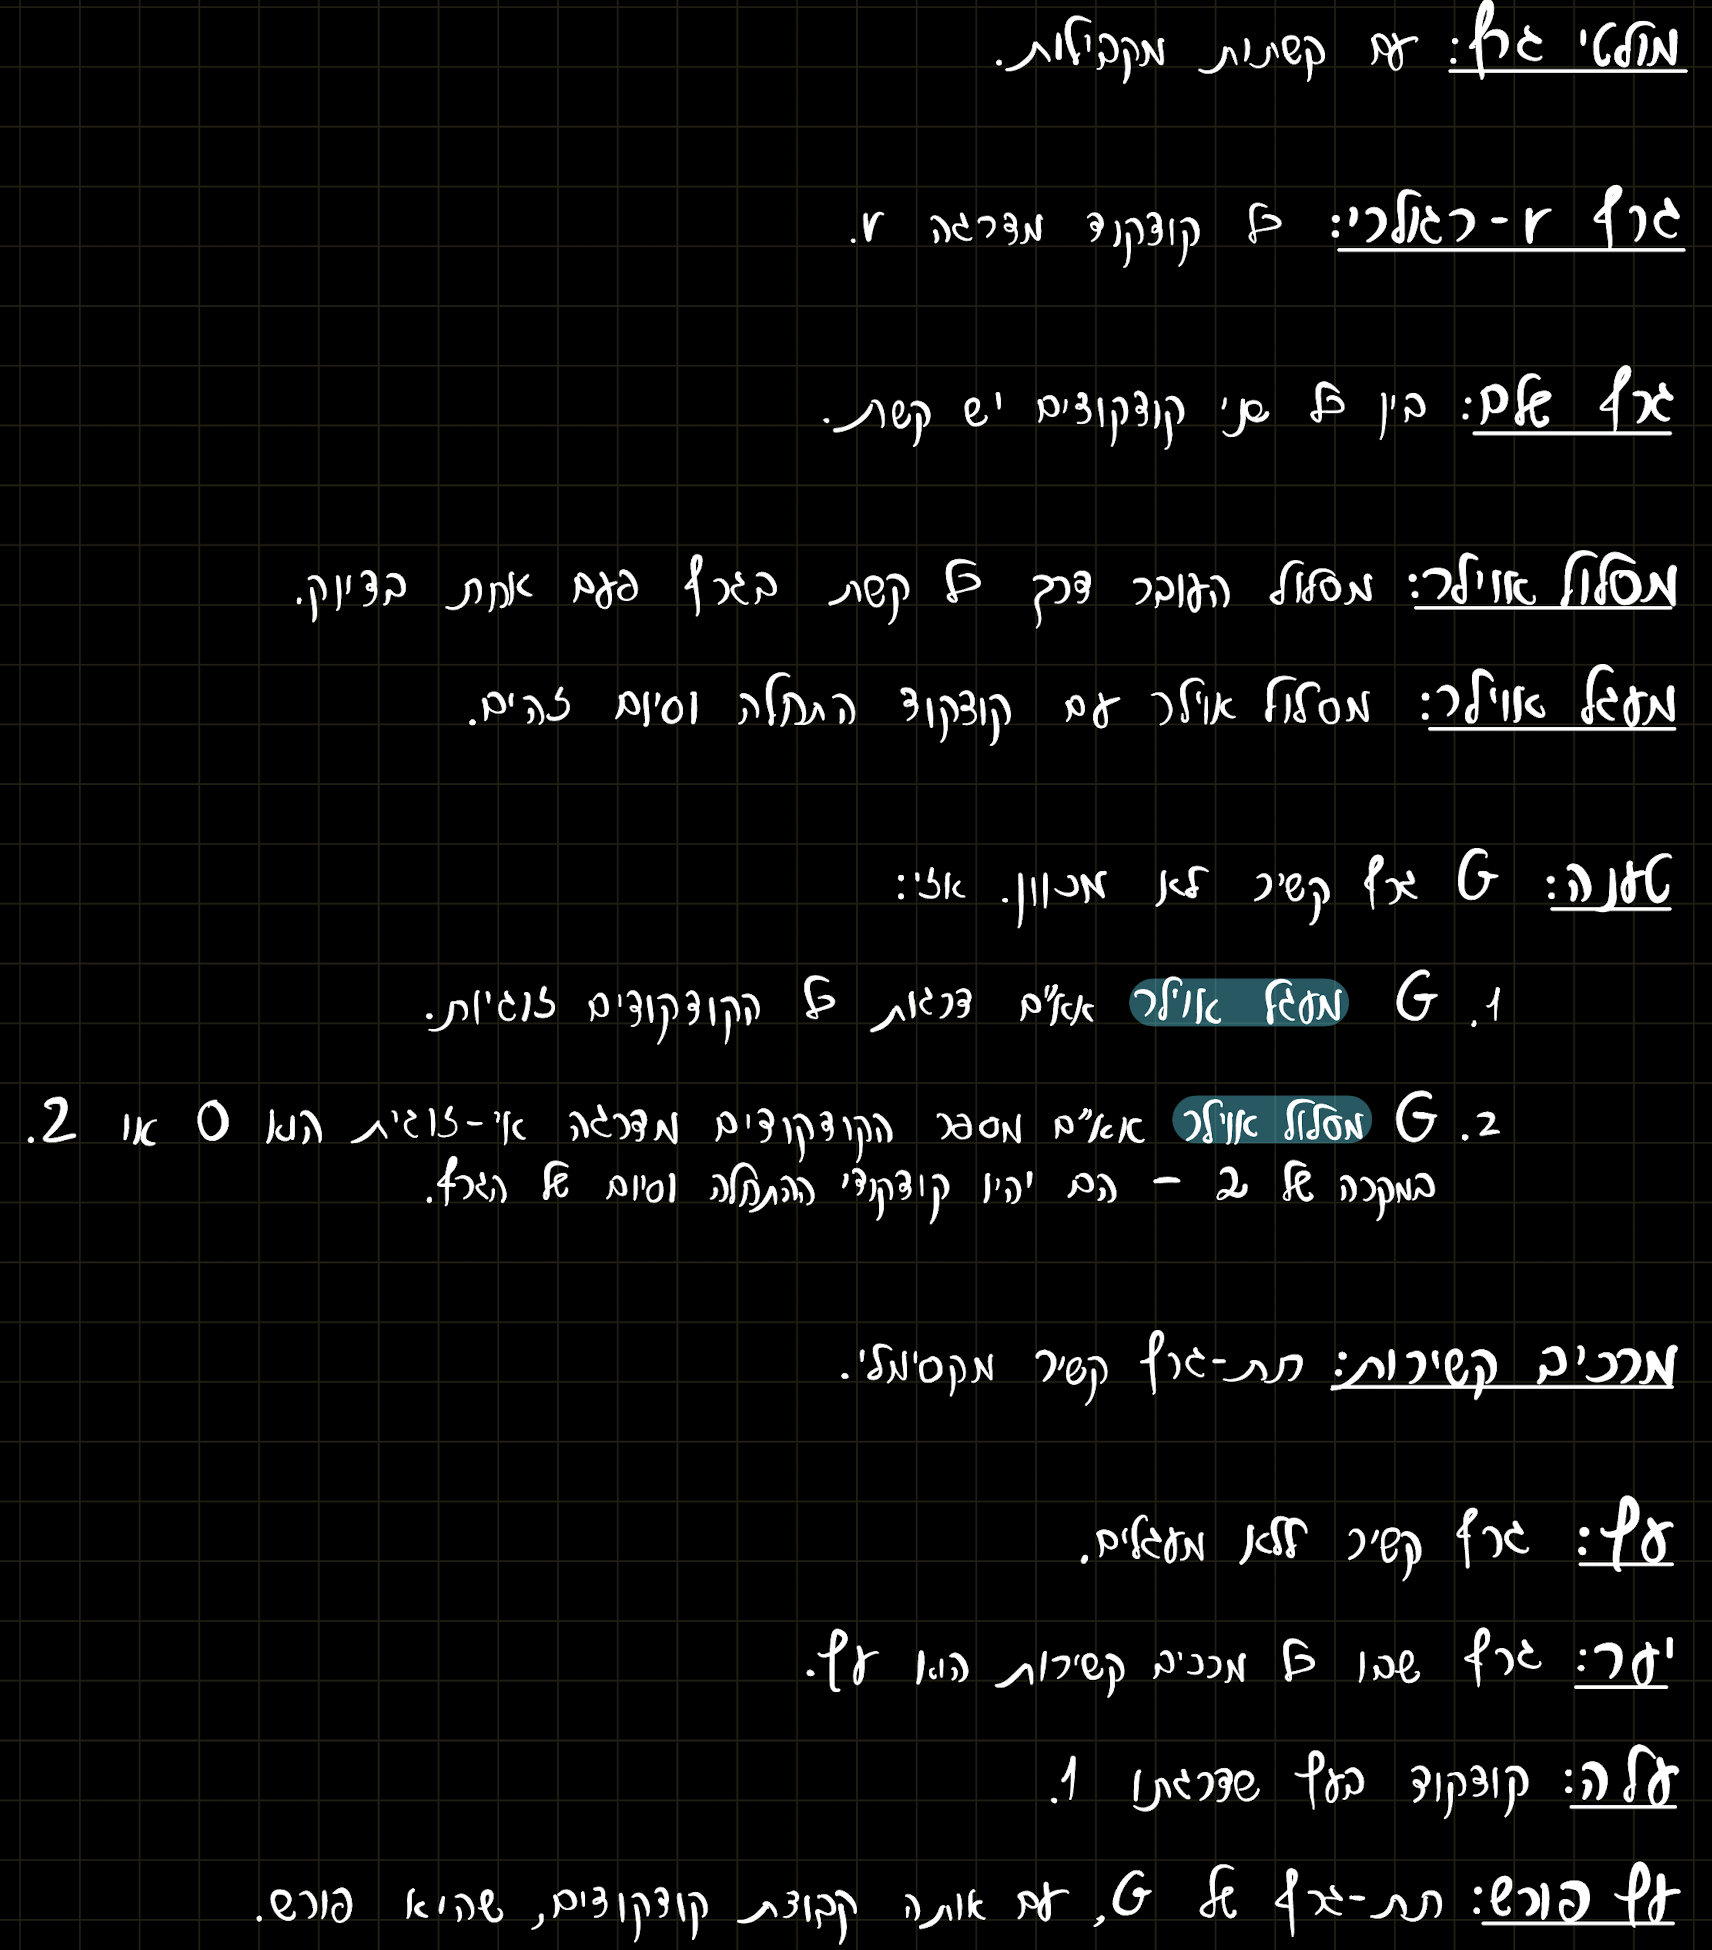 מולטי גרף: עם קשתות מקבילות.
גרף r-רגולרי: כל קודקוד מדרגה r.
גרף שלם: בין כל שני קודקודים יש קשת.
מסלול אוילר: מסלול העובר דרך כל קשת בגרף פעם אחת בדיוק.
מעגל אוילר: מסלול אוילר עם קודקוד התחלה וסיום זהים.
טענה: G גרף קשיר לא מכוון. אזי:
1. G מעגל אוילר אא"ם דרגות כל הקודקודים זוגיות.
2. G מסלול אוילר אא"ם מספר הקודקודים מדרגה אי-זוגית הוא 0 או 2.
במקרה של 2 - הם יהיו קודקודי ההתחלה וסיום של הגרף.
מרכיב קשירות: תת-גרף קשיר מקסימלי.
עץ: גרף קשיר ללא מעגלים.
יער: גרף שבו כל מרכיב קשירות הוא עץ.
עלה: קודקוד בעץ שדרגתו 1.
עץ פורש: תת-גרף של G, עם אותה קבוצת קודקודים, שהיא פורש.